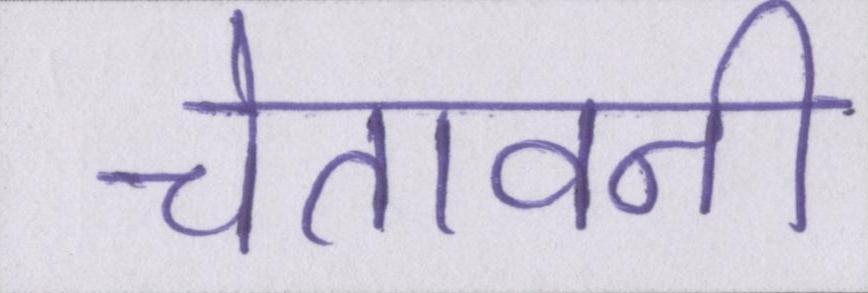 चेतावनी